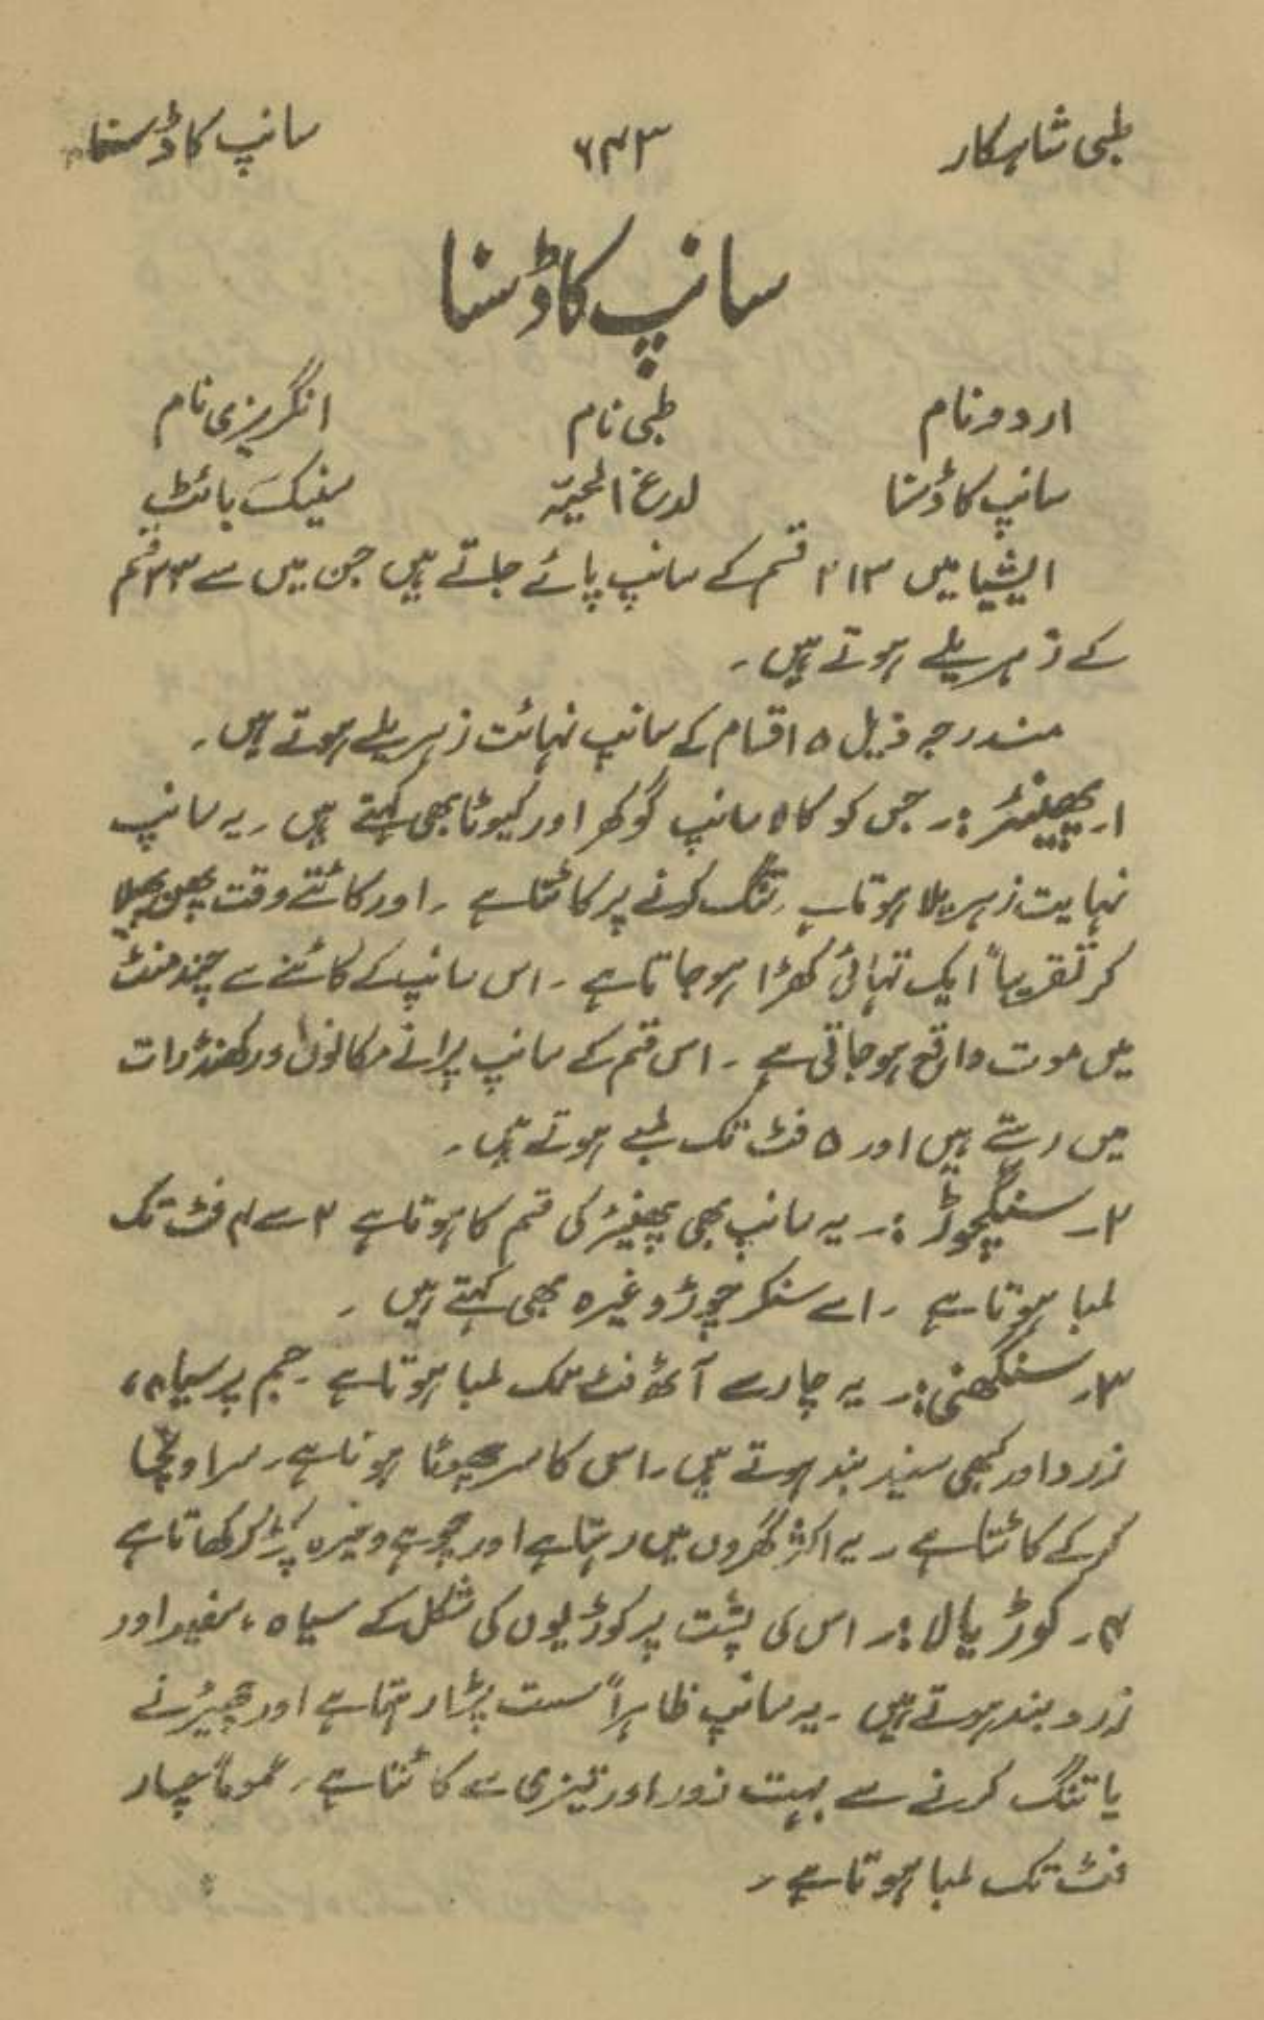 طبی شاہکار ۶۴۳ سانپ کا ڈسنا
سانپ کا ڈسنا
اردو نام طبی نام انگریزی نام
سانپ کا ڈسنا لدغ الحیۃ سنیک بائٹ
ایشیا میں ۲۱۳ قسم کے سانپ پائے جاتے ہیں جن میں سے ۳۳ قسم
کے زہریلے ہوتے ہیں۔
مندرجہ ذیل ۵ اقسام کے سانپ نہائت زہریلے ہوتے ہیں۔
۱۔ پھنیئر :۔ جس کو کالا سانپ گوکھر اور کیوٹا بھی کہتے ہیں ۔ یہ سانپ
نہایت زہریلا ہوتا ہے ۔ تنگ کرنے پر کاٹتا ہے ۔ اور کاٹتے وقت پھن پھیلا
کر تقریباً ایک تہائی کھڑا ہو جاتا ہے ۔ اس سانپ کے کاٹنے سے چند منٹ
میں موت واقع ہو جاتی ہے ۔ اس قسم کے سانپ پرانے مکانوں اور کھنڈرات
میں رہتے ہیں اور ۵ فٹ تک لمبے ہوتے ہیں۔
۲۔ سنگچوڑ :۔ یہ سانپ بھی پھنیئر کی قسم کا ہوتا ہے ۲ سے ۴ فٹ تک
لمبا ہوتا ہے ۔ اسے سنکر چوڑ وغیرہ بھی کہتے ہیں ۔
۳۔ سنگھنی :۔ یہ چار سے آٹھ فٹ تک لمبا ہوتا ہے ۔ جسم پر سیاہ،
زرد اور کبھی سفید بند ہوتے ہیں ۔ اس کا سر چھوٹا ہوتا ہے ۔ سر اونچا
کر کے کاٹتا ہے ۔ یہ اکثر گھروں میں رہتا ہے اور چوہے وغیرہ پکڑ کر کھاتا ہے
۴۔ کوڑیالا :۔ اس کی پشت پر کوڑیوں کی شکل کے سیاہ ، سفید اور
زرد بند ہوتے ہیں ۔ یہ سانپ ظاہراً سست پڑا رہتا ہے اور چھیڑنے
یا تنگ کرنے سے بہت زور اور تیزی سے کاٹتا ہے ۔ عموماً چار
فٹ تک لمبا ہوتا ہے ۔